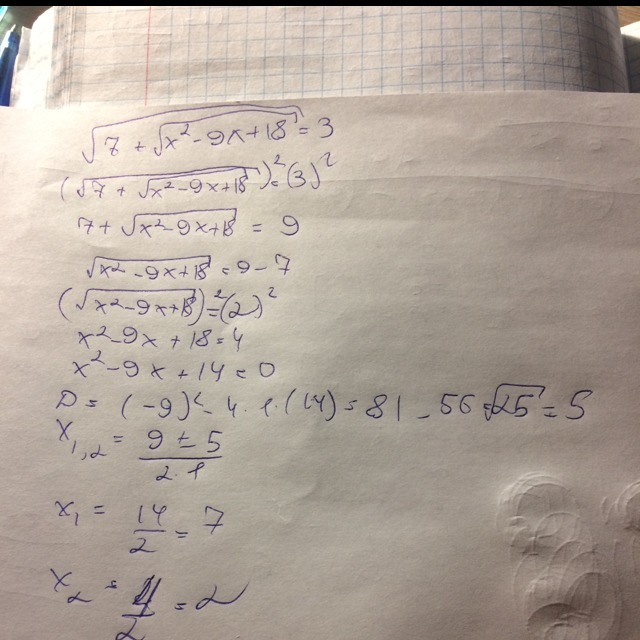 √(7 + √(x² - 9x + 18)) = 3
(√(7 + √(x² - 9x + 18)))² = (3)²
7 + √(x² - 9x + 18) = 9
√(x² - 9x + 18) = 9 - 7
(√(x² - 9x + 18))² = (2)²
x² - 9x + 18 = 4
x² - 9x + 14 = 0
D = (-9)² - 4 · 1 · (14) = 81 - 56 = √25 = 5
x₁,₂ = (9 ± 5)/(2 · 1)
x₁ = 14/2 = 7
x₂ = 4/2 = 2